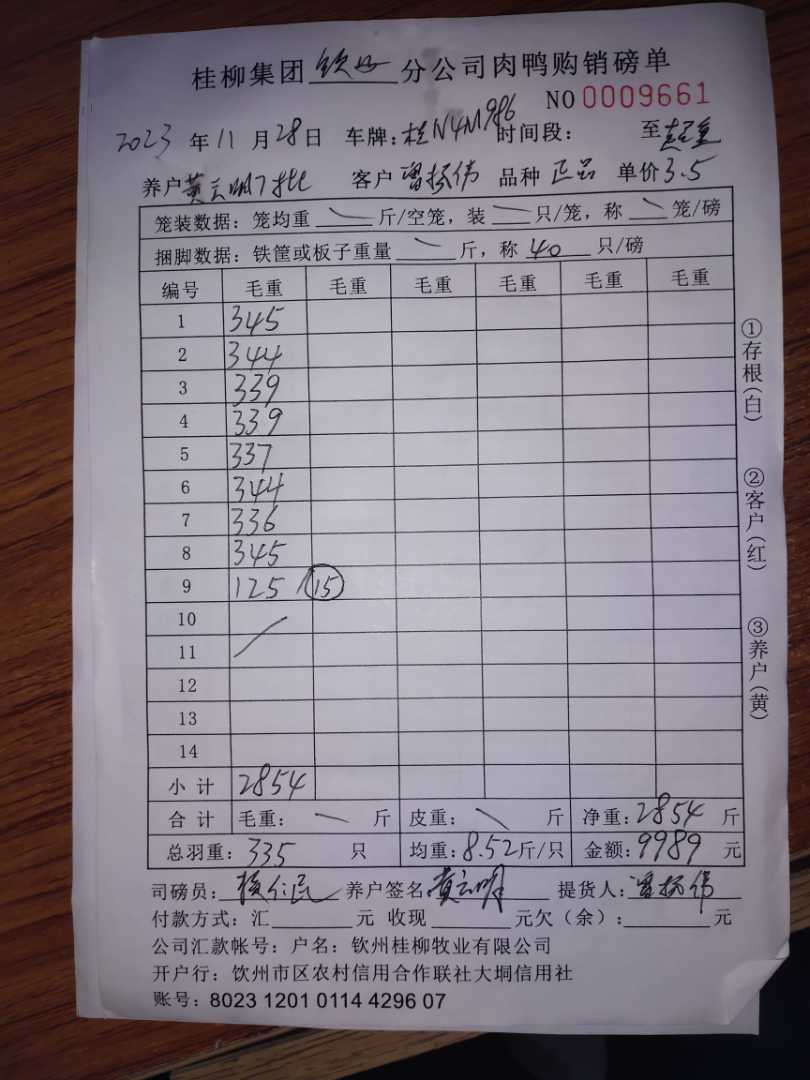 桂柳集团 钦州 分公司肉鸭购销磅单
NO 0009661
2023 年 11 月 28 日 车牌:桂N4M986 时间段: 至
养户 黄云明 客户 曾杨伟 品种 正品 单价 3.5
笼装数据:笼均重 斤/空笼,装 只/笼,称 笼/磅
捆脚数据:铁筐或板子重量 斤,称 40 只/磅
编号 毛重 毛重 毛重 毛重 毛重 毛重
1 345
2 344
3 339
4 339
5 337
6 344
7 336
8 345
9 125 15
10
11
12
13
14
小 计 2854
合 计 毛重: 斤 皮重: 斤 净重:2854 斤
总羽重:335 只 均重:8.52斤/只 金额:9989 元
司磅员: 养户签名:黄云明 提货人:曾杨伟
付款方式:汇 元 收现 元欠(余): 元
公司汇款帐号:户名:钦州桂柳牧业有限公司
开户行:饮州市区农村信用合作联社大垌信用社
账号:8023 1201 0114 4296 07
①存根(白)
②客户(红)
③养户(黄)